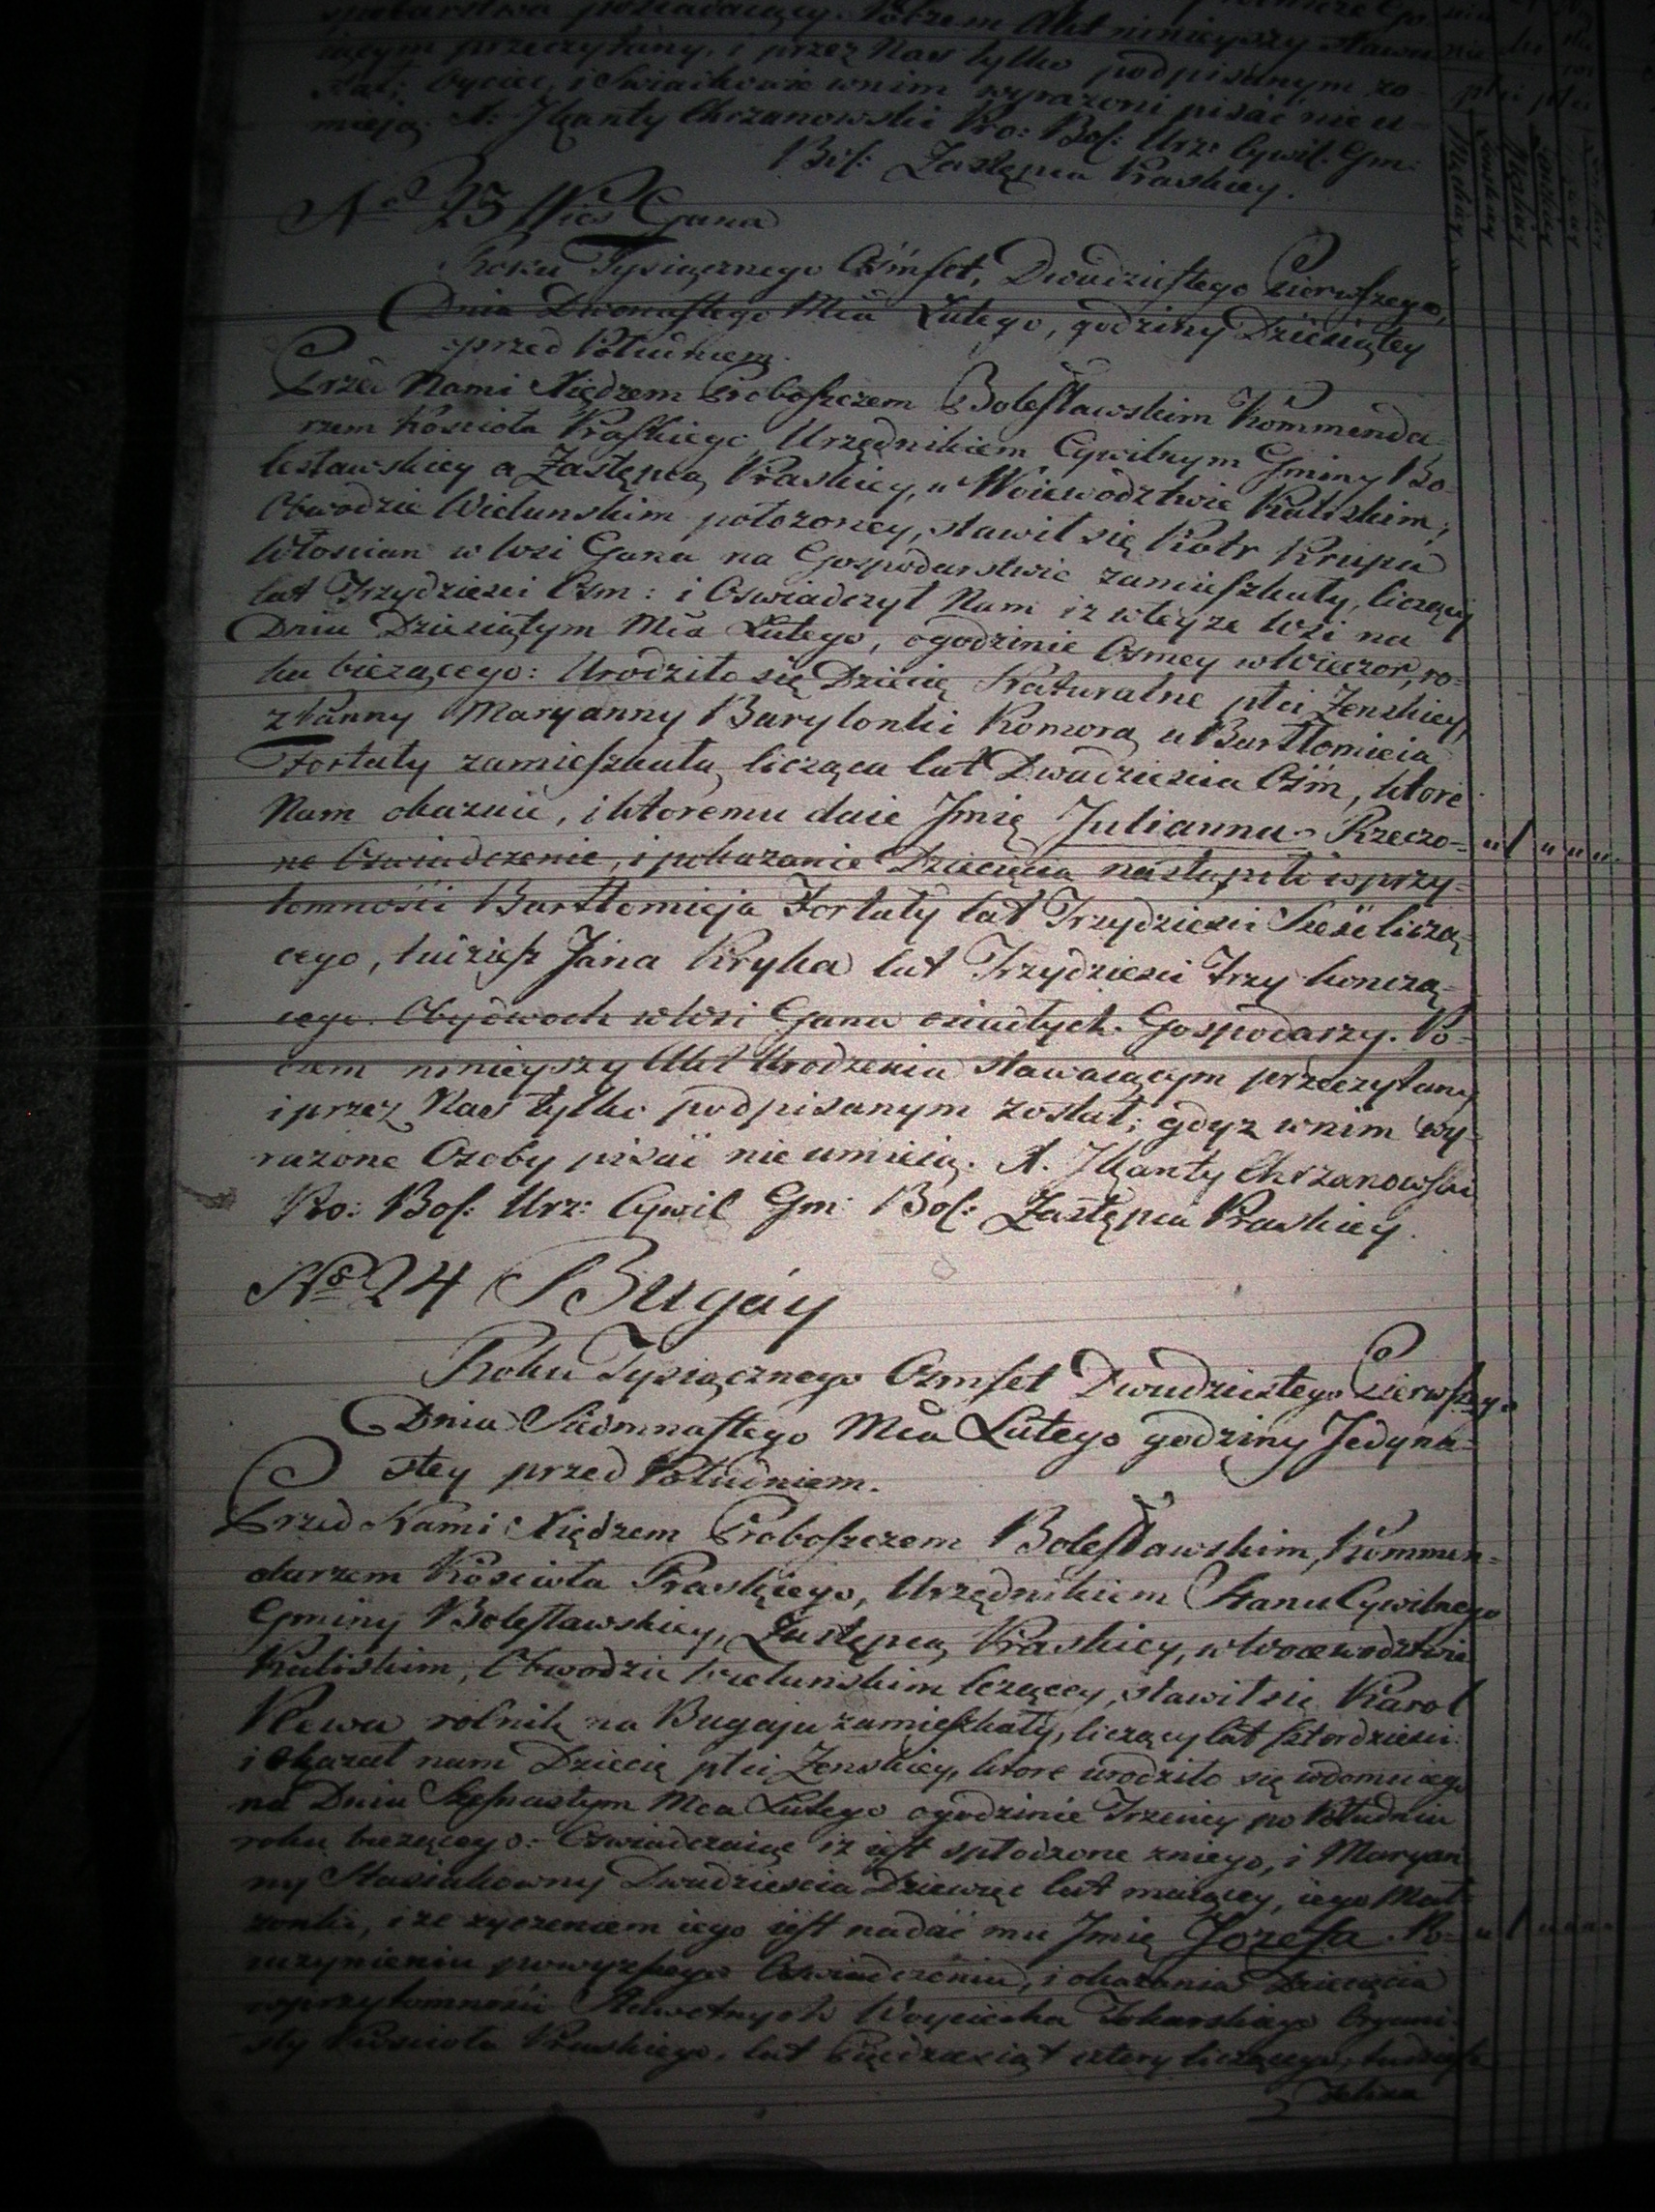 spodarstwa posiadaiący. Potzem Akt ninieyszy stawa
iącym przeczytany, i przez Nas tylko podpisanym zo-
stał; Oyciec, i Swiadkowie wnim wyrazeni pisać nie u-
mieią. X. JKanty Chrzanowski Pro: Bol: Urz: Cywil. Gm:
Bol: Zastępca Praskiey.
No 23 Wieś Gana
Roku Tysiącznego Ośmset, Dwudziestego Pierwszego,
Dnia Dwunastego Mca Lutego, godziny Dziesiątey
przed Południem.
Przed Nami Xiędzem Proboszczem Bolesławskim Kommenda-
rzem Kościoła Praskiego, Urzędnikiem Cywilnym Gminy Bo-
lesławskiey a Zastępcą Praskiey, w Woiewództwie Kaliskim,
Obwodzie Wielunskim położoney, stawił się Piotr Krupa
Włościan w Wsi Gana na Gospodarstwie zamieszkały, liczący
lat Trzydzieści Osm: i Oswiadczył Nam iz wteyze Wsi na
Dniu Dziesiątym Mca Lutego, ogodzinie Osmey wWieczor, ro-
ku biezącego: Urodziło się Dziecię Naturalne płci Zenskiey,
z Panny Maryanny Burytonki Komorą u Bartłomieia
Fortuły zamieszkała, licząca lat Dwadzieścia Ośm, ktore
Nam okazuie, i ktoremu daie Jmię Julianna. Rzeczo-
ne Oswiadczenie, i pokazanie Dziecięcia nastąpiło wprzy-
tomności Bartłomieja Fortuły lat Trzydzieści Sześć liczą-
cego, tudzież Jana Kryka lat Trzydzieści Trzy kończą-
cego. Obydwoch wWsi Gana osiadłych Gospodarzy. Po-
czem ninieyszy Akt Urodzenia stawaiącym przeczytany
i przez Nas tylko podpisanym został; gdyz wnim wy-
rażone Osoby pisać nie umieią. X. JKanty Chrzanowski
Pro: Bol: Urz: Cywil Gm: Bol: Zastępca Praskiey.
No 24 Bugay
Roku Tysiącznego Osmset Dwudziestego Pierwszego
Dnia Siedmnastego Mca Lutego godziny Jedyna-
stey przed Południem.
Przed Nami Xiędzem Proboszczem Bolesławskim, Kommen-
darzem Kościoła Praskiego, Urzędnikiem Stanu Cywilnego
Gminy Bolesławskiey, Zastępcą Praskiey, w Woiewodztwie
Kaliskim, Obwodzie Wielunskim leżącey, stawił się Karol
Plewa rolnik na Bugaju zamieszkały, liczący lat sztordzieści
i okazał nam Dziecię płci Zenskiey, ktore urodziło się wdomu iego
na Dniu Szesnastym Mca Lutego ogodzinie Trzeciey po Południu
roku biezącego: Oswiadczaiąc iz iest spłodzone zniego, i Maryan
ny Stasiakowny Dwadzieścia Dziewięć lat maiącey, iego Mał
zonki, i ze zyczeniem iego iest nadać mu Jmię Jozefa. Po-
uczynieniu powyzszego Oswiadczenia, i okazania Dziecięcia
wprzytomności Sławetnych Woyciecha Tokarskiego Organi-
sty Kościoła Praskiego, lat Pięćdziesiąt cztery liczącego, tudziesz